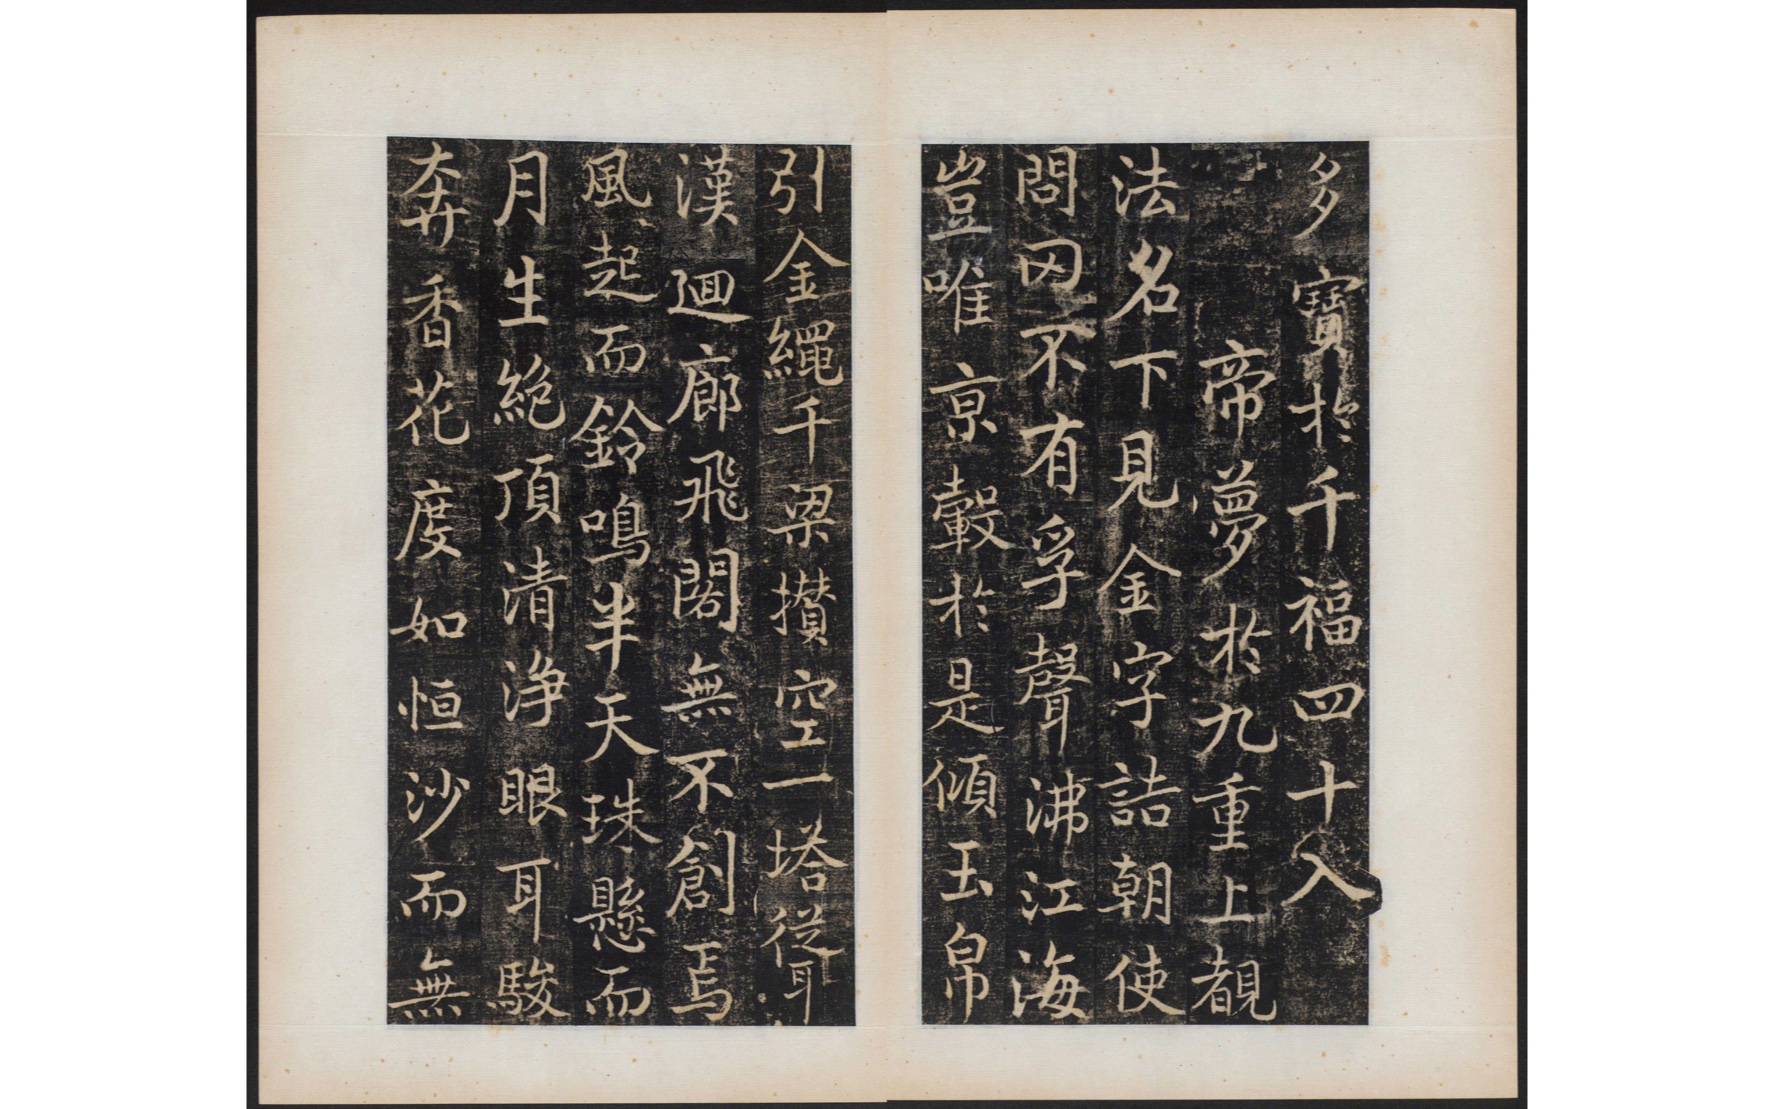 多寶於千福四十入
帝夢於九重上覩
法名下見金字詰朝使
問罔不有孚聲沸江海
豈唯京轂於是傾玉帛
引金繩千梁攢空一塔從聳
漢廻廊飛閣無不創焉
風起而鈴鳴半天珠懸而
月生絶頂清淨眼耳駿
奔香花度如恒沙而無